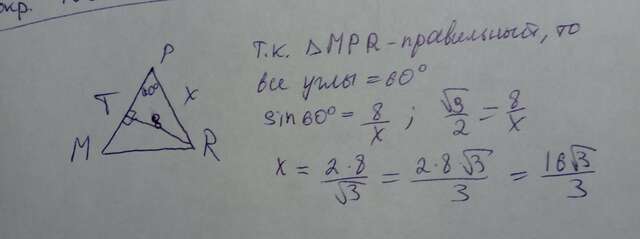 окр.
P
60°
T
x
8
M
R
Т.к. △MPR - правильный, то
все углы = 60°
sin60° = 8/x ; √3/2 = 8/x
x = 2·8/√3 = 2·8·√3/3 = 16√3/3